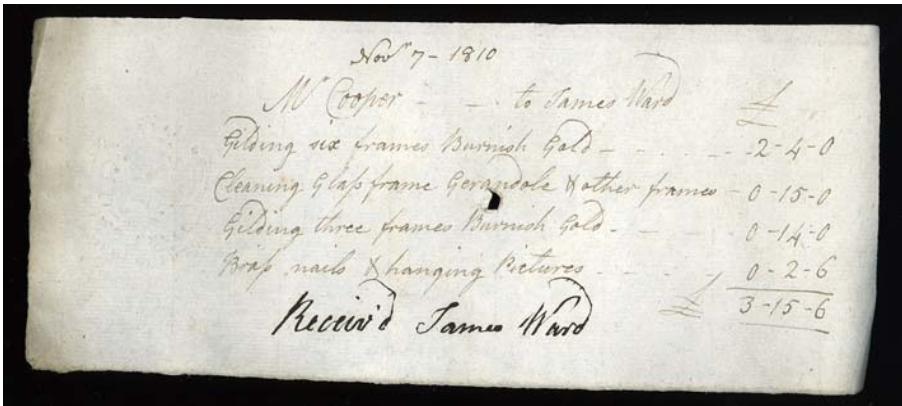 Novr 7 - 1810
Mr Cooper - - to James Ward £
Gilding six frames Burnish Gold - - - - - 2-4-0
Cleaning Glaſs frame Gerandole & other frames - 0-15-0
Gilding three frames Burnish Gold - - - - 0-14-0
Braſs nails & hanging Pictures - - - - - 0-2-6
£ 3-15-6
Receiv'd James Ward